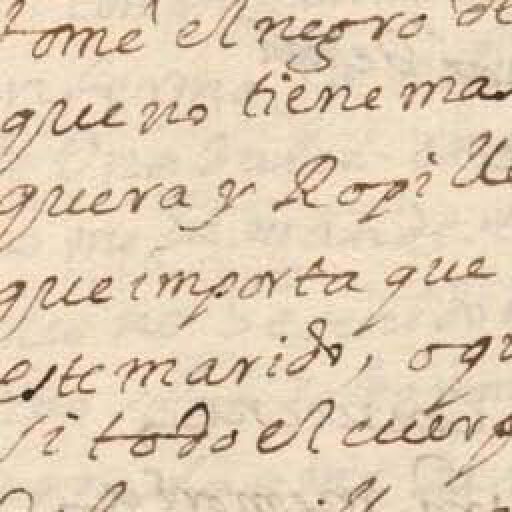 tome el negro de
que no tiene mas
quera y Ropille
que importa que
este marido, o qu
si todo el cuerp